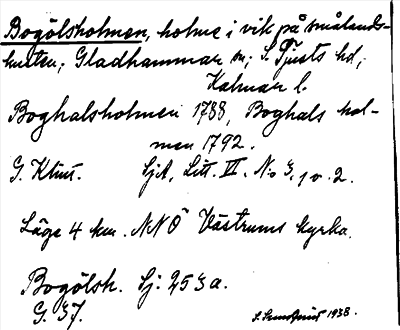 Bogölsholmen, holme i vik på smålands-
kusten; Gladhammar sn; S. Tjusts hd,
Kalmar l.
Boghalsholmen 1788, Boghals hol-
men 1792.
G. Klint. SjA, Litt. II. N:o 3, 1 o. 2.
Läge 4 km. NNÖ Västrums kyrka.
Bogölsh. Sj: 253a.
G. 37. 1938.